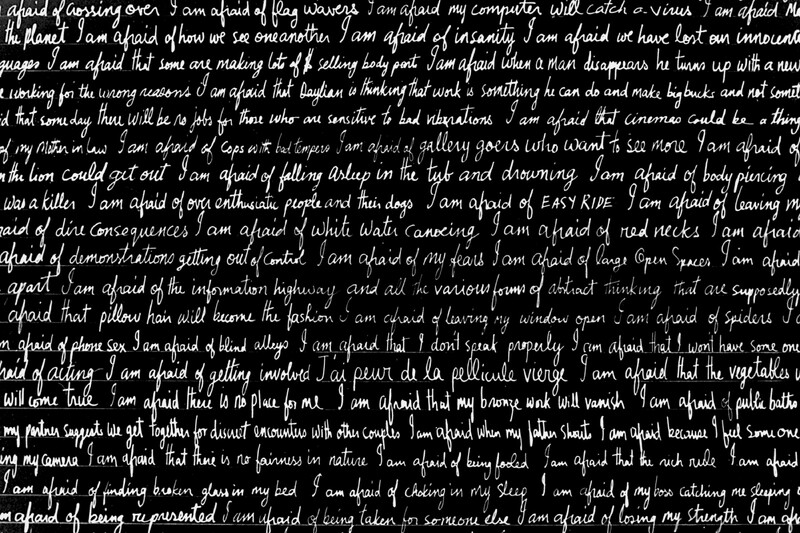 afraid of crossing over I am afraid of flag wavers I am afraid my computer will catch a virus I am afraid
the planet I am afraid of how we see one another I am afraid of insanity I am afraid we have lost our innocence
guages I am afraid that some are making lots of $ selling body part I am afraid when a man disappears he turns up with a new
working for the wrong reasons I am afraid that Daylian is thinking that work is something he can do and make big bucks and not somet
id that some day there will be no jobs for those who are sensitive to bad vibrations I am afraid that cinemas could be a thing
of my Mother in law I am afraid of cops with bad tempers I am afraid of gallery goers who want to see more I am afraid of
the lion could get out I am afraid of falling asleep in the tub and drowning I am afraid of body piercing
was a killer I am afraid of over enthusiastic people and their dogs I am afraid of EASY RIDE I am afraid of leaving m
raid of dire consequences I am afraid of white water canoeing I am afraid of red necks I am afraid
afraid of demonstrations getting out of control I am afraid of my fears I am afraid of large Open Spaces I am afraid
apart I am afraid of the information highway and all the various forms of abstract thinking that are supposedly
afraid that pillow hair will become the fashion I am afraid of leaving my window open I am afraid of spiders I a
m afraid of phone sex I am afraid of blind alleys I am afraid that I don't speak properly I am afraid that I won't have some one
fraid of acting I am afraid of getting involved J'ai peur de la pellicule vierge I am afraid that the vegetables w
will come true I am afraid there is no place for me I am afraid that my bronze work will vanish I am afraid of public baths
my partner suggests we get together for discreet encounters with other couples I am afraid when my father shouts I am afraid because I feel some one
ing my camera I am afraid that there is no fairness in nature I am afraid of being fooled I am afraid that the rich rule I am afraid
I am afraid of finding broken glass in my bed I am afraid of choking in my sleep I am afraid of my boss catching me sleeping
m afraid of being represented I am afraid of being taken for someone else I am afraid of losing my strength I am afr